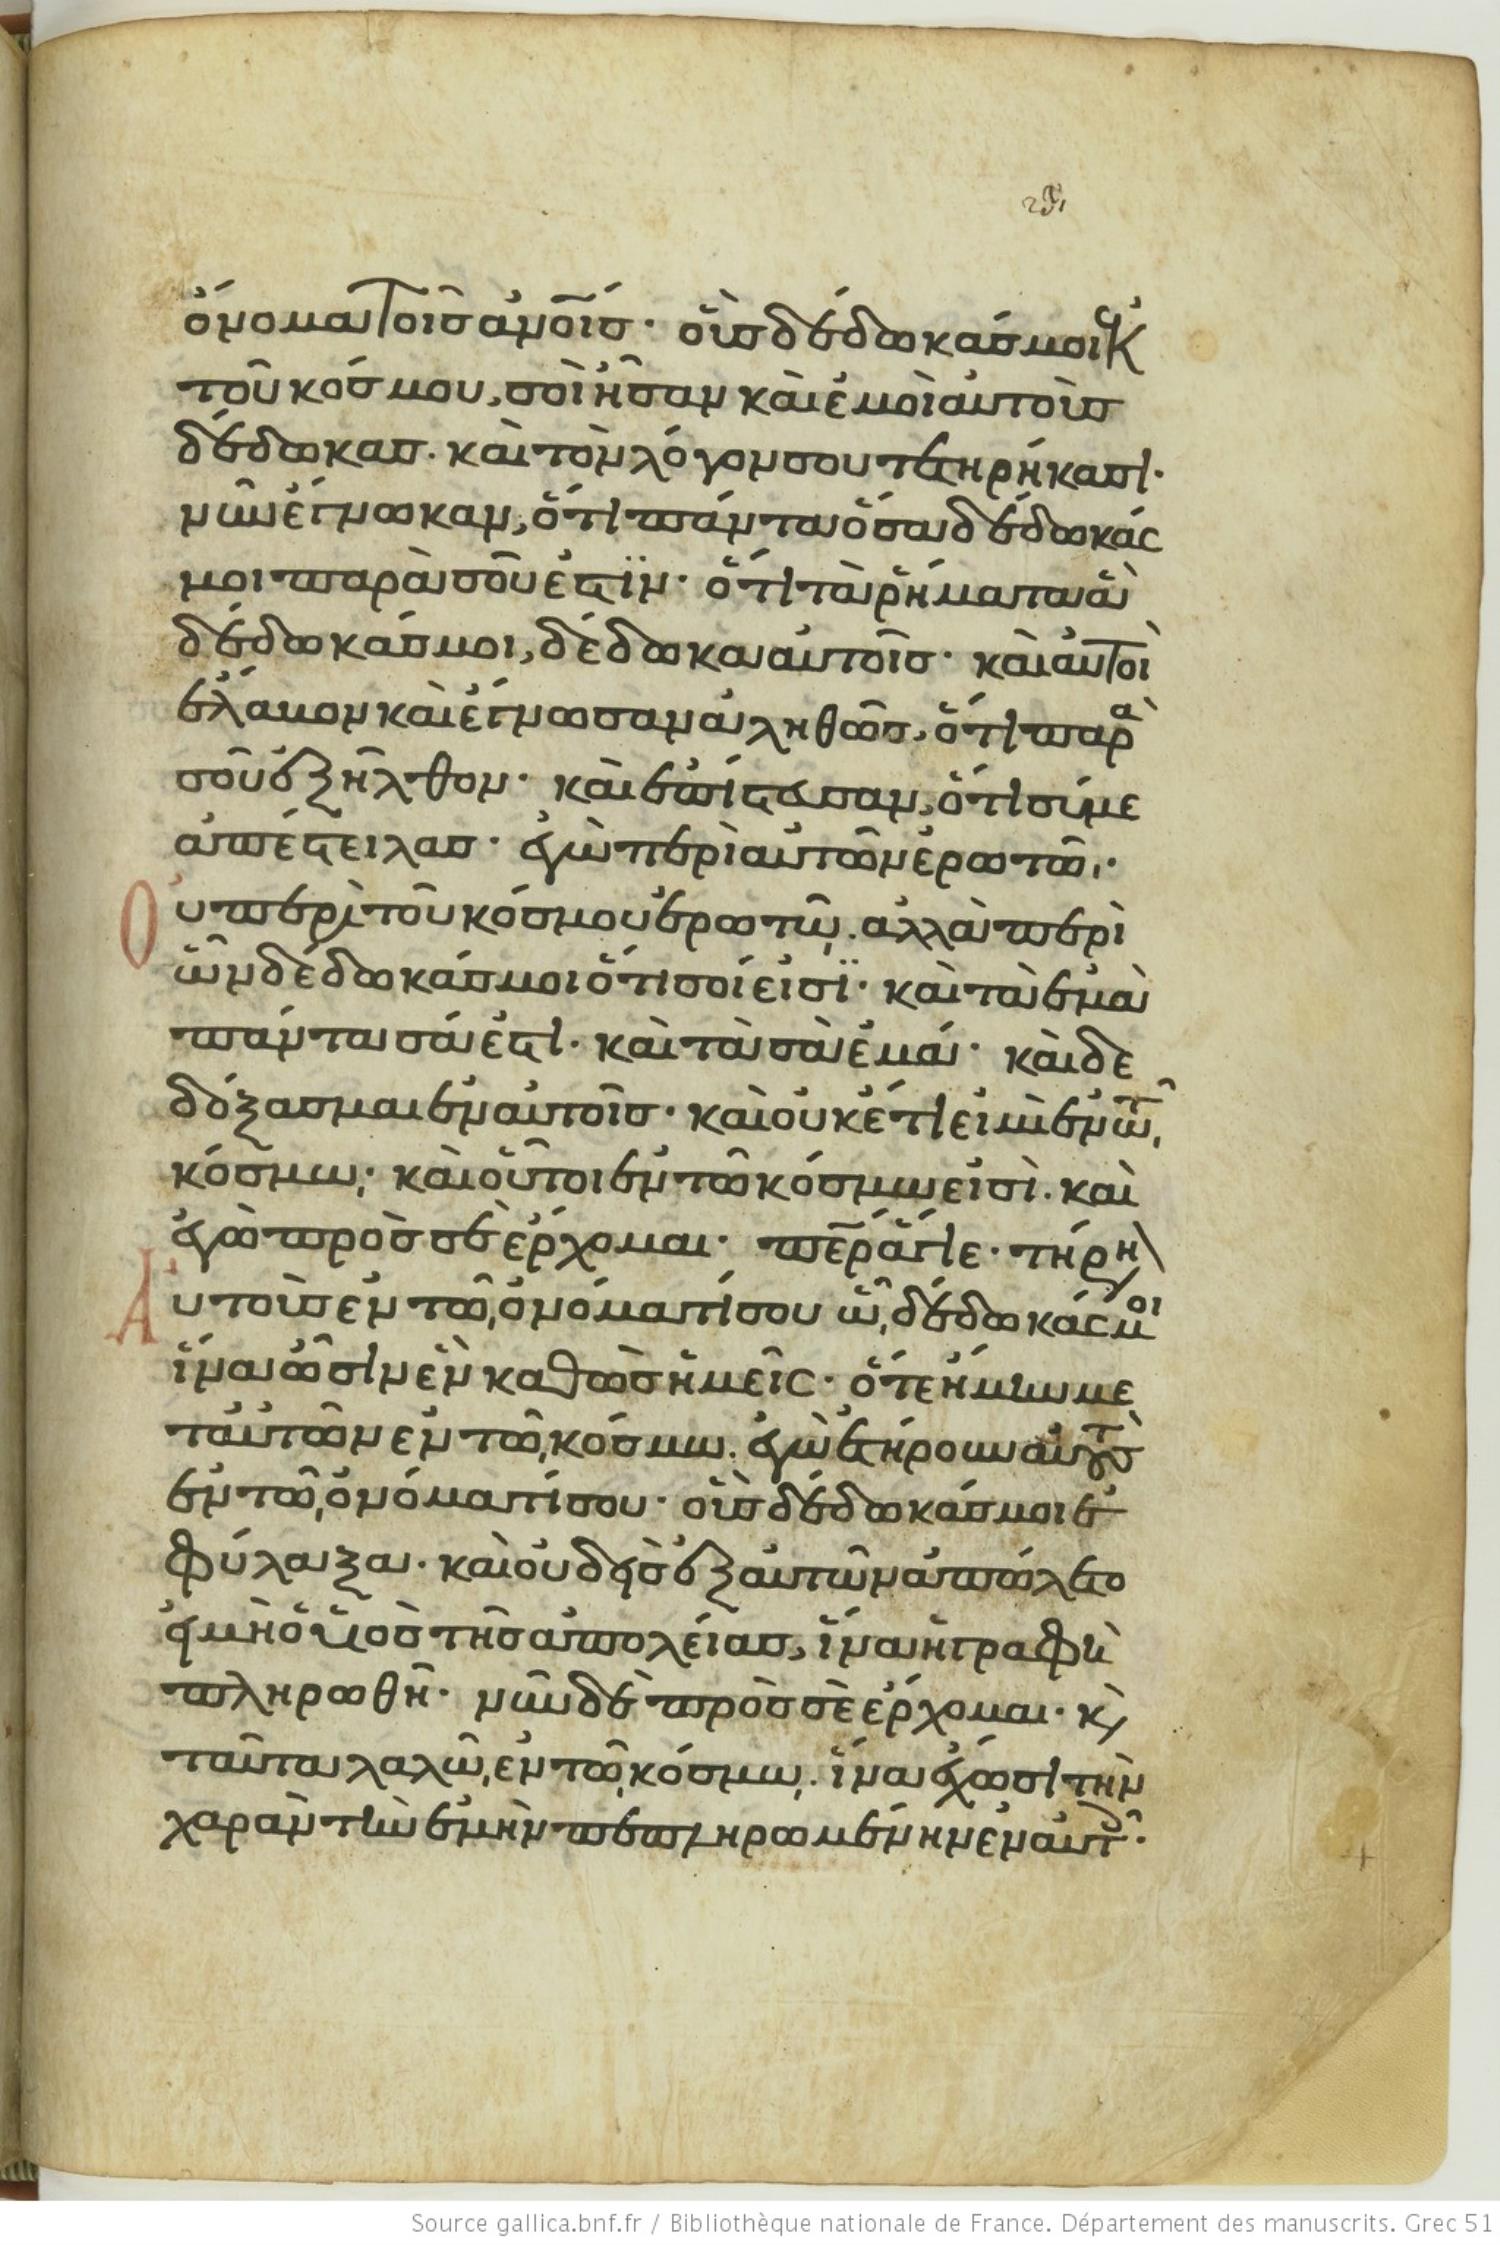 ὄνομα τοῖς ἀνοῖς· οὓς δέδωκάς μοι ἐκ
τοῦ κόσμου, σοὶ ἦσαν καὶ ἐμοὶ αὐτοὺς
δέδωκας· καὶ τὸν λόγον σου τετηρήκασι·
νῦν ἔγνωκαν, ὅτι πάντα ὅσα δέδωκάς
μοι παρὰ σοῦ ἐστϊν· ὅτι τὰ ῥήματα ἃ
δέδωκάς μοι, δέδωκα αὐτοῖς· καὶ αὐτοὶ
ἔλαβον καὶ ἔγνωσαν ἀληθῶς, ὅτι παρὰ
σοῦ ἐξῆλθον· καὶ ἐπίστευσαν, ὅτι σύ με
ἀπέστειλας· ἐγὼ περὶ αὐτῶν ἐρωτῶ·
Οὐ περὶ τοῦ κόσμου ἐρωτῶ. ἀλλὰ περὶ
ὧν δέδωκάς μοι ὅτι σοί εἰσϊ· καὶ τὰ ἐμὰ
πάντα σά ἐστι· καὶ τὰ σὰ ἐμά· καὶ δε
δόξασμαι ἐν αὐτοῖς· καὶ οὐκέτι εἰμὶ ἐν τῶ
κόσμω· καὶ οὗτοι ἐν τῶ κόσμω εἰσὶ· καὶ
ἐγὼ πρὸς σὲ ἔρχομαι· περ ἅγιε· τήρη
Αὐτοὺς ἐν τῶ ὀνόματί σου ὧ δέδωκάς μοι
ἵνα ὦσιν ἓν καθὼς ἡμεῖς· ὅτε ἤμην με
τ αὐτῶν ἐν τῶ κόσμω. ἐγὼ ἐτήρουν αὐτοὺς
ἐν τῶ ὀνόματί σου· οὓς δέδωκάς μοι ἐ
φύλαξα· καὶ οὐδεὶς ἐξ αὐτῶν ἀπώλετο
εἰ μὴ ὁ υἱὸς τῆς ἀπολείας, ἵνα ἡ γραφὴ
πληρωθῆ· νῦν δὲ πρὸς σὲ ἔρχομαι· κὶ
ταῦτα λαλῶ ἐν τῶ κόσμω. ἵνα ἔχωσι τὴν
χαρὰν τὴν ἐμὴν πεπληρωμένην ἐν αὐτοῖς·
Source gallica.bnf.fr / Bibliothèque nationale de France. Département des manuscrits. Grec 51